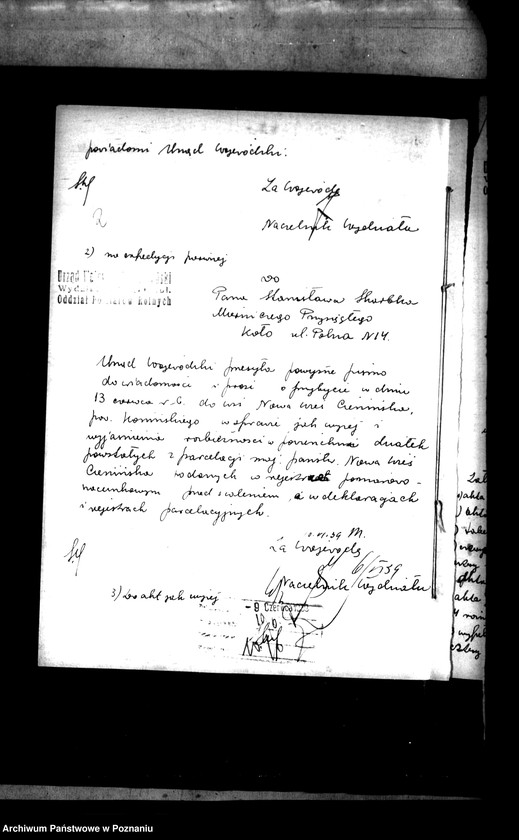 powiadomi Urząd Wojewódzki.
Za Wojewodę
Naczelnik Wydziału
2) na ekspedycji powyżej
Urząd Wojewódzki
Oddział Pomiarów Rolnych
Do
Pana Stanisława Skarbka
Mierniczego Przysięgłego
Koło ul. Polna N 14.
Urząd Wojewódzki przesyła powyższe pismo
do wiadomości i prosi o przybycie w dniu
13 czerwca r.b. do wsi Nowa Wieś Cienińska,
pow. Konińskiego w sprawie jak wyżej i
wyjaśnienia rozbieżności w powierzchni działek
powstałych z parcelacji maj. państw. Nowa Wieś
Cienińska podanych w rejestrach pomiarowo-
szacunkowym przed scaleniem, a w deklaracjach
i rejestrach parcelacyjnych.
Za Wojewodę
6/VI 39
Naczelnik Wydziału
3) Do akt jak wyżej
- 9 Czerwca
Archiwum Państwowe w Poznaniu